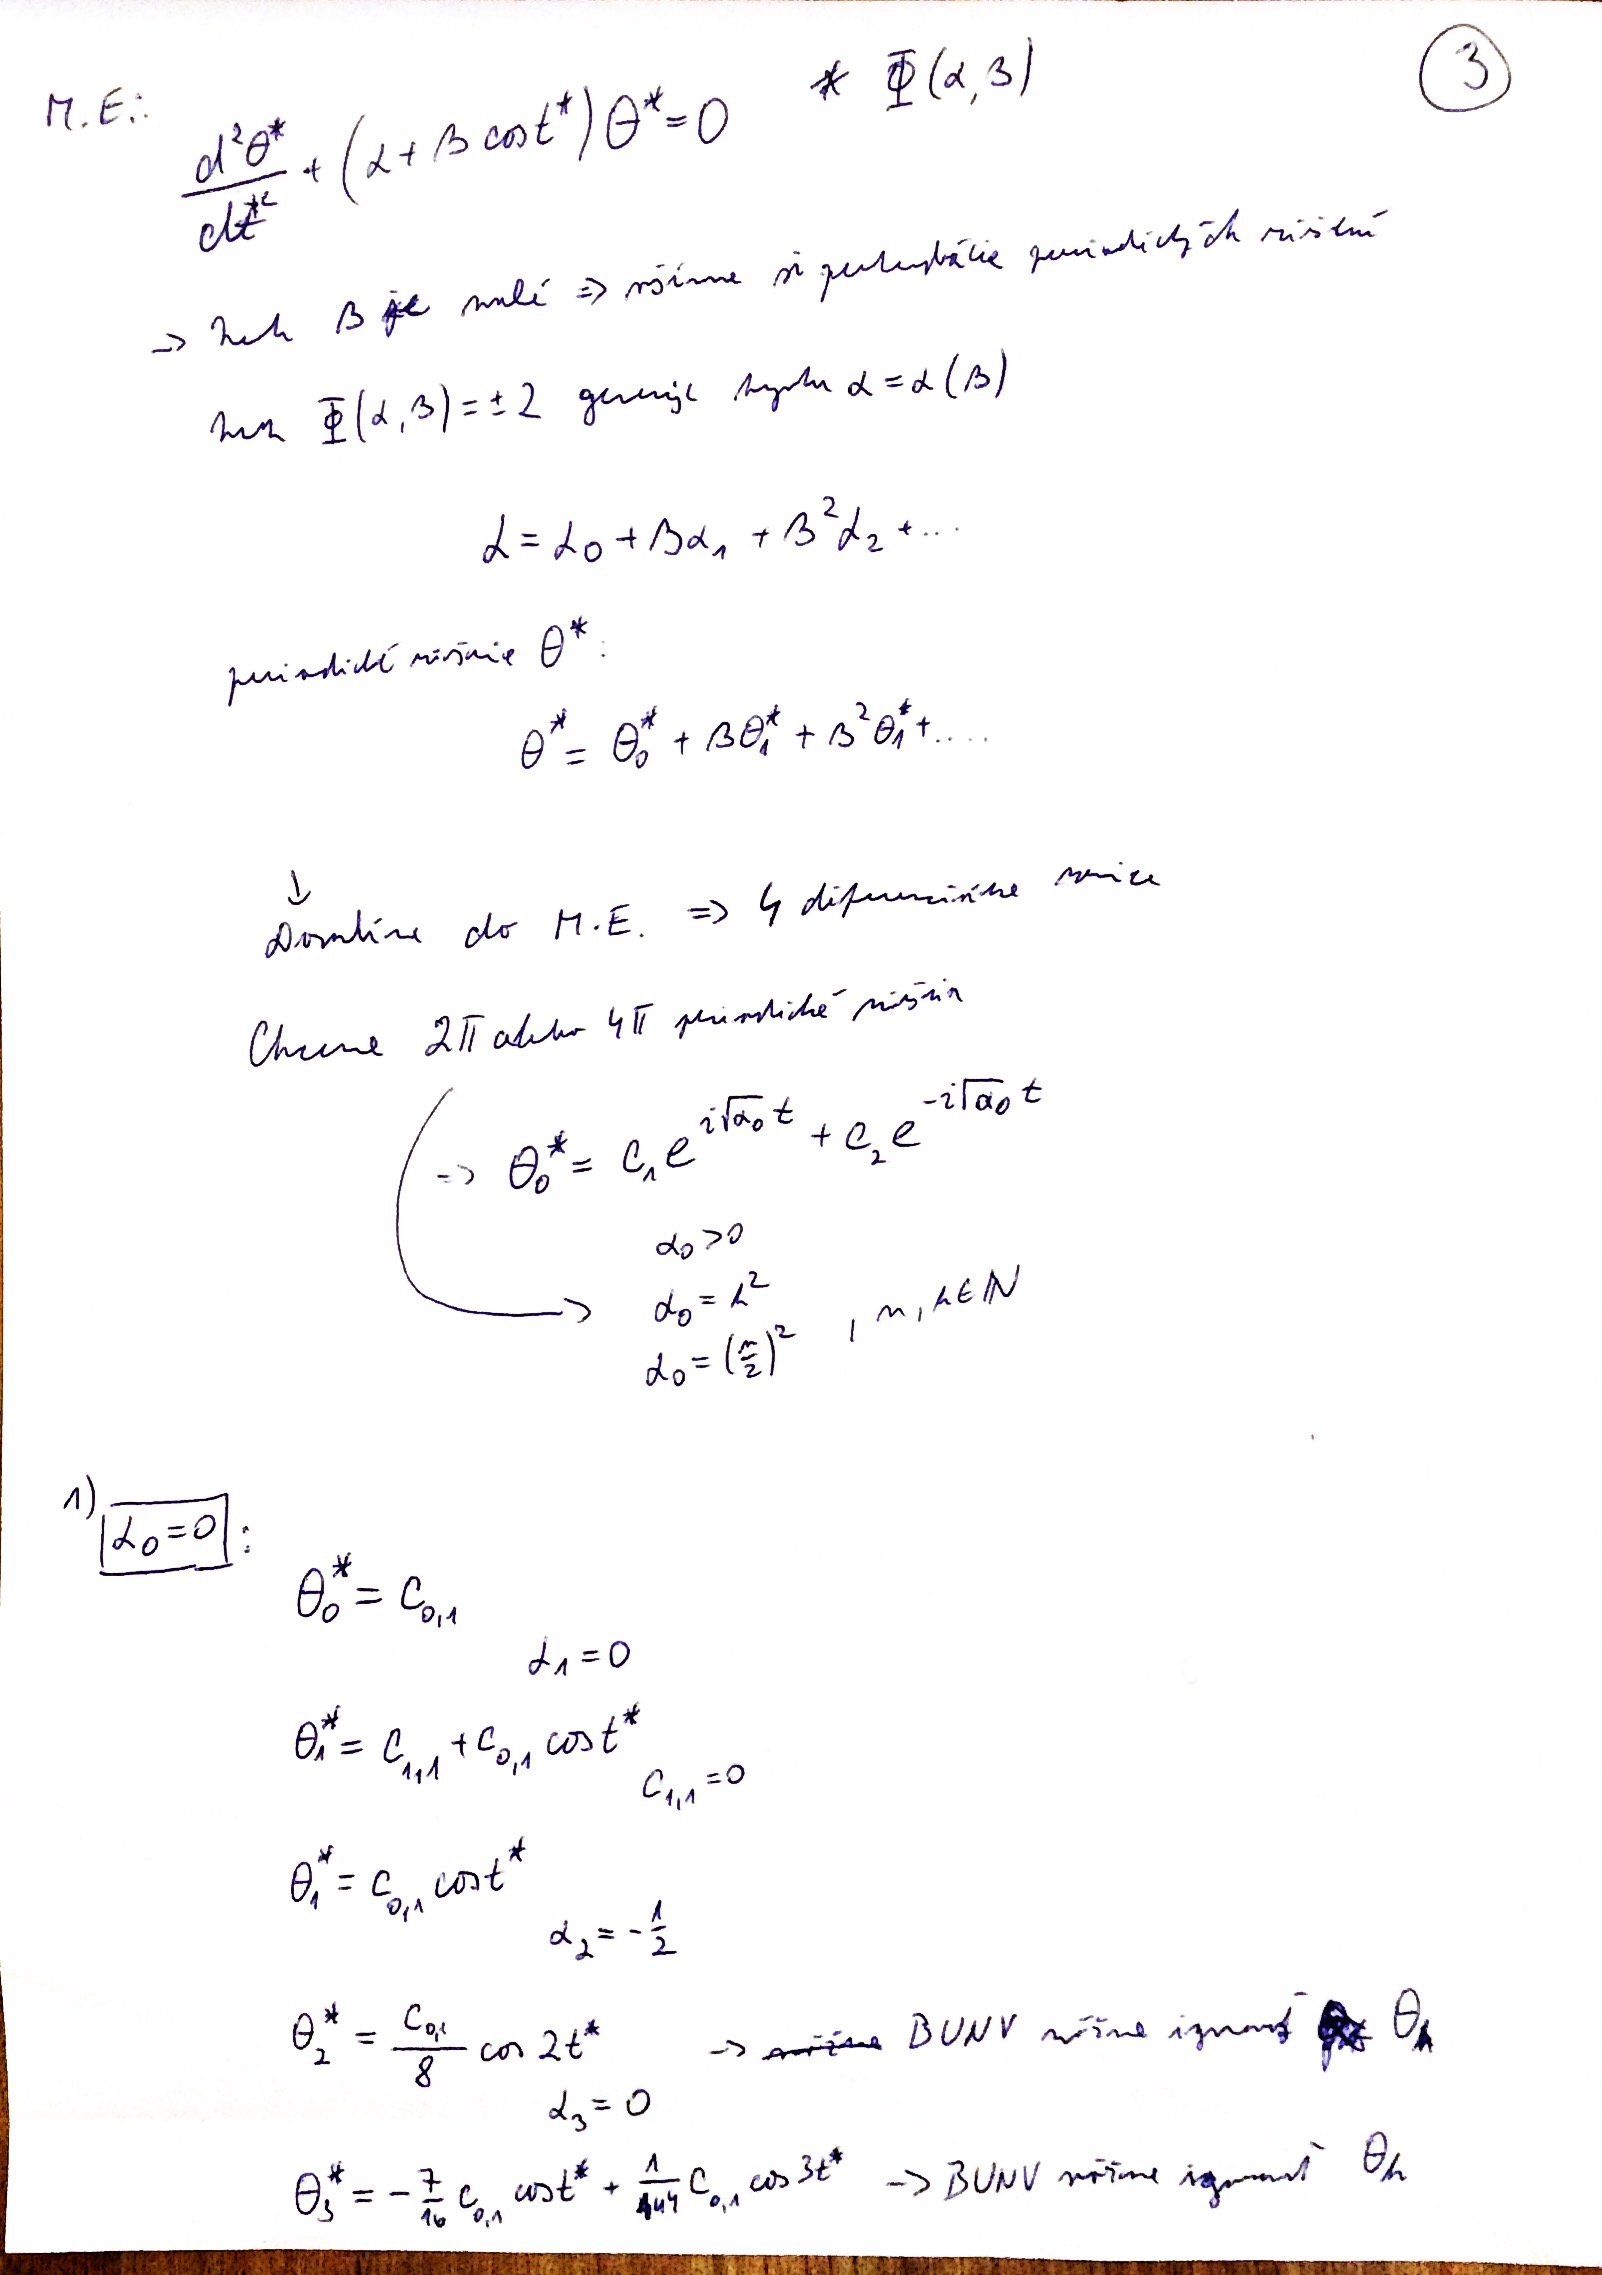 3
M.E.: d²θ*/dt*² + (α + β cos t*) θ* = 0 * Φ(α, β)
→ Nech β je malé ⇒ všímame si perturbácie periodických riešení
nech Φ(α, β) = ±2 generuje α = α(β)
α = α₀ + βα₁ + β²α₂ + ...
periodické riešenie θ*:
θ* = θ₀* + βθ₁* + β²θ₁* + ....
↓
Dosadíme do M.E. ⇒ 4 diferenciálne rovnice
Chceme 2π alebo 4π periodické riešenia
⇒ θ₀* = C₁e^{i√α₀ t} + C₂e^{-i√α₀ t}
α₀ > 0
α₀ = k²
α₀ = (n/2)² , n, k ∈ ℕ
1) α₀ = 0 :
θ₀* = C₀,₁
α₁ = 0
θ₁* = C₁,₁ + C₀,₁ cos t*
C₁,₁ = 0
θ₁* = C₀,₁ cos t*
α₂ = -1/2
θ₂* = C₀,₁/8 cos 2t* → BUNV môžme ignorovať θₕ
α₃ = 0
θ₃* = -7/16 C₀,₁ cos t* + 1/144 C₀,₁ cos 3t* → BUNV môžme ignorovať θₕ